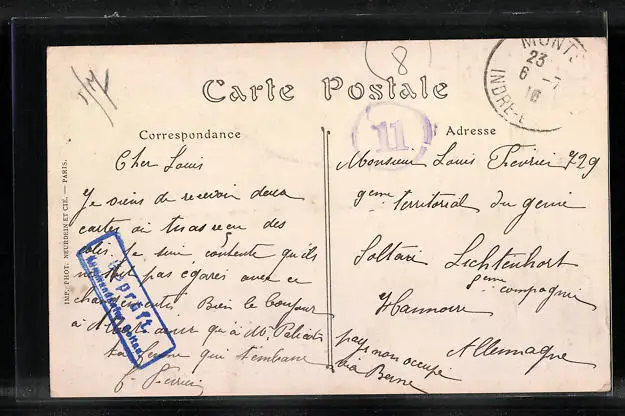 8
Carte Postale
MONT
23
6 - 7
16
INDRE-
11
Correspondance
Adresse
IMP. PHOT. NEURDEIN ET CIE. — PARIS.
Cher Louis
Je viens de recevoir deux
cartes où tu as reçu des
colis. Je suis contente qu'ils
ne soit pas égarés avec ce
changement. Bien le bonjour
à Albert ainsi qu'à Mr
ta femme qui t'embrasse
F. Fevrier
Geprüft
Kommandantur Soltau
Monsieur Louis Fevrier 729
9eme territorial du genie
Soltau Lichtenhort
9eme compagnie
Hannovre
Allemagne
pays non occupé
via Berne